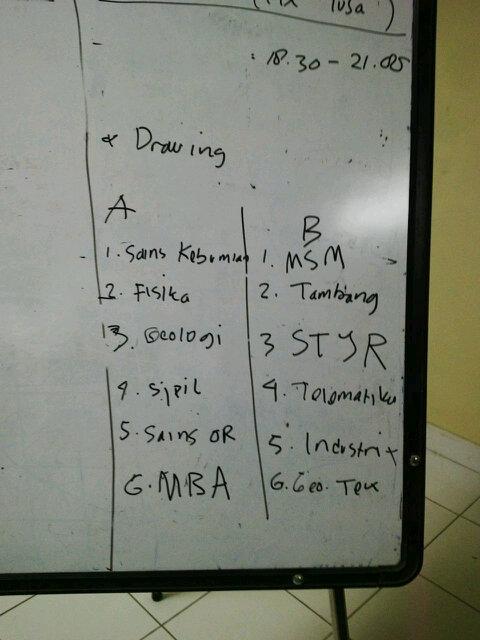 : 18.30 - 21.05
* Drawing
A
1. Sains Kebumian
2. Fisika
3. Geologi
4. Sipil
5. Sains OR
6. MBA
B
1. MSM
2. Tambang
3 STJR
4. Telematika
5. Industri
6. Geo. Tek